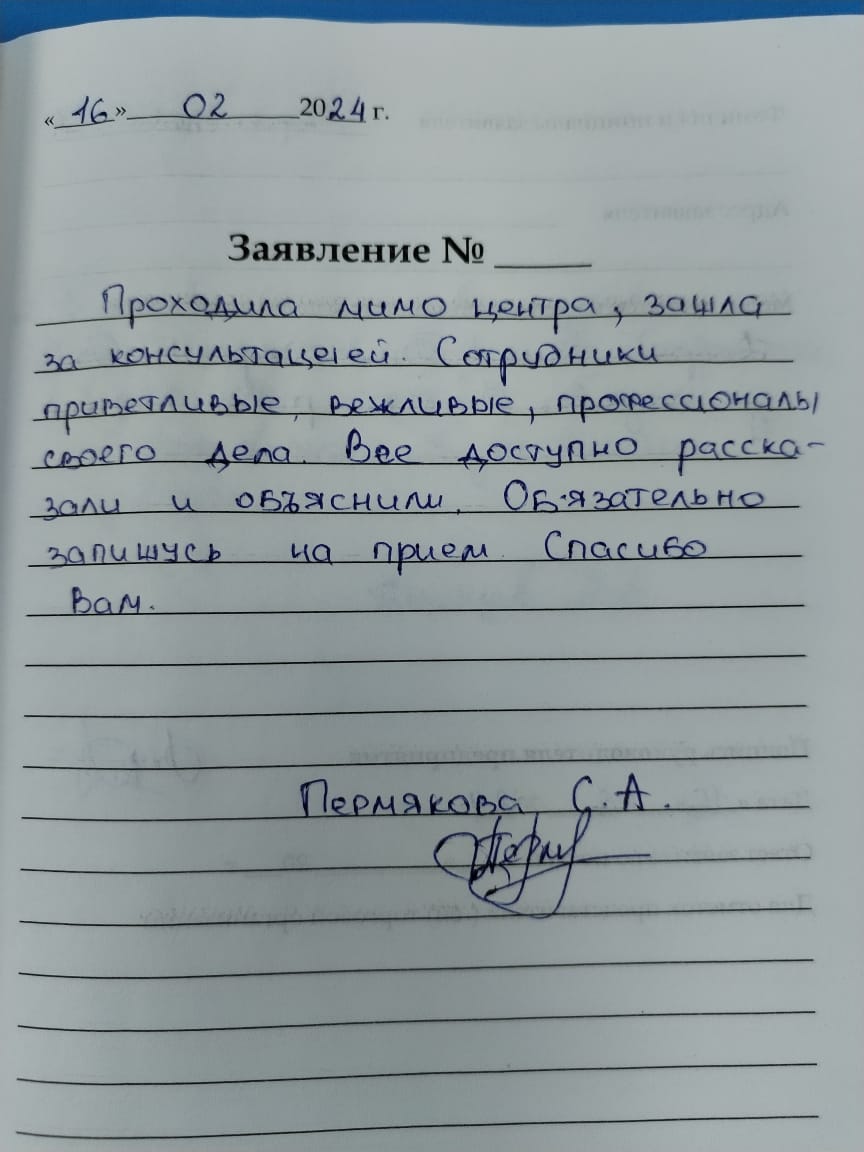 «16» 02 2024 г.
Заявление № _____
Проходила мимо центра, зашла
за консультацией. Сотрудники
приветливые, вежливые, профессионалы
своего дела. Все доступно расска-
зали и объяснили. Обязательно
запишусь на прием. Спасибо
Вам.
Пермякова С.А.